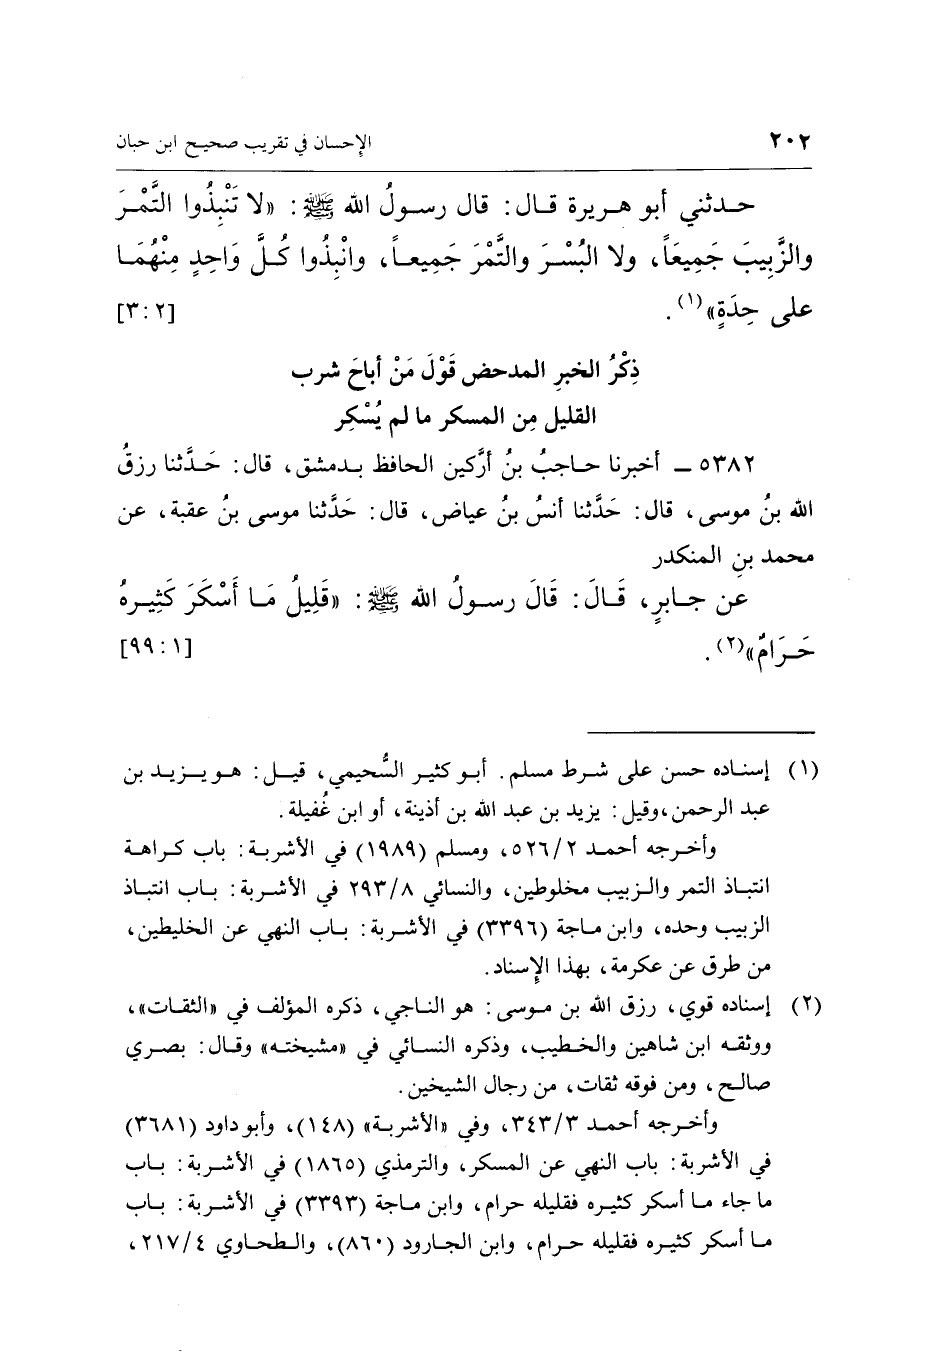 ٢٠٢ الإحسان في تقريب صحيح ابن حبان
حدثني أبو هريرة قال: قال رسولُ الله ﷺ: «لا تَنْبِذُوا التَّمْرَ
والزَّبِيبَ جَمِيعَاً، ولا البُسْرَ والتَّمْرَ جَمِيعاً، وانْبِذُوا كُلَّ وَاحِدٍ مِنْهُمَا
على حِدَةٍ»(١). [٣:٢]
ذِكْرُ الخبرِ المدحض قَوْلَ مَنْ أباحَ شرب
القليل مِن المسكر ما لم يُسْكِر
٥٣٨٢ ــ أخبرنا حاجبُ بنُ أرَّكين الحافظ بدمشق، قال: حَدَّثنا رزقُ
الله بنُ موسى، قال: حَدَّثنا أنسُ بنُ عياض، قال: حَدَّثنا موسى بنُ عقبة، عن
محمد بنِ المنكدر
عن جابرٍ، قَالَ: قَالَ رسولُ الله ﷺ: «قَلِيلُ مَا أَسْكَرَ كَثِيرهُ
حَرَامٌ»(٢). [٩٩:١]
(١) إسناده حسن على شرط مسلم. أبو كثير السُّحيمي، قيل: هو يزيد بن
عبد الرحمن،وقيل: يزيد بن عبد الله بن أذينة، أو ابن غُفيلة.
وأخرجه أحمد ٥٢٦/٢، ومسلم (١٩٨٩) في الأشربة: باب كراهة
انتباذ التمر والزبيب مخلوطين، والنسائي ٢٩٣/٨ في الأشربة: باب انتباذ
الزبيب وحده، وابن ماجة (٣٣٩٦) في الأشربة: باب النهي عن الخليطين،
من طرق عن عكرمة، بهذا الإسناد.
(٢) إسناده قوي، رزق الله بن موسى: هو الناجي، ذكره المؤلف في «الثقات»،
ووثقه ابن شاهين والخطيب، وذكره النسائي في «مشيخته» وقال: بصري
صالح، ومن فوقه ثقات، من رجال الشيخين.
وأخرجه أحمد ٣٤٣/٣، وفي «الأشربة» (١٤٨)، وأبو داود (٣٦٨١)
في الأشربة: باب النهي عن المسكر، والترمذي (١٨٦٥) في الأشربة: باب
ما جاء ما أسكر كثيره فقليله حرام، وابن ماجة (٣٣٩٣) في الأشربة: باب
ما أسكر كثيره فقليله حرام، وابن الجارود (٨٦٠)، والطحاوي ٢١٧/٤،